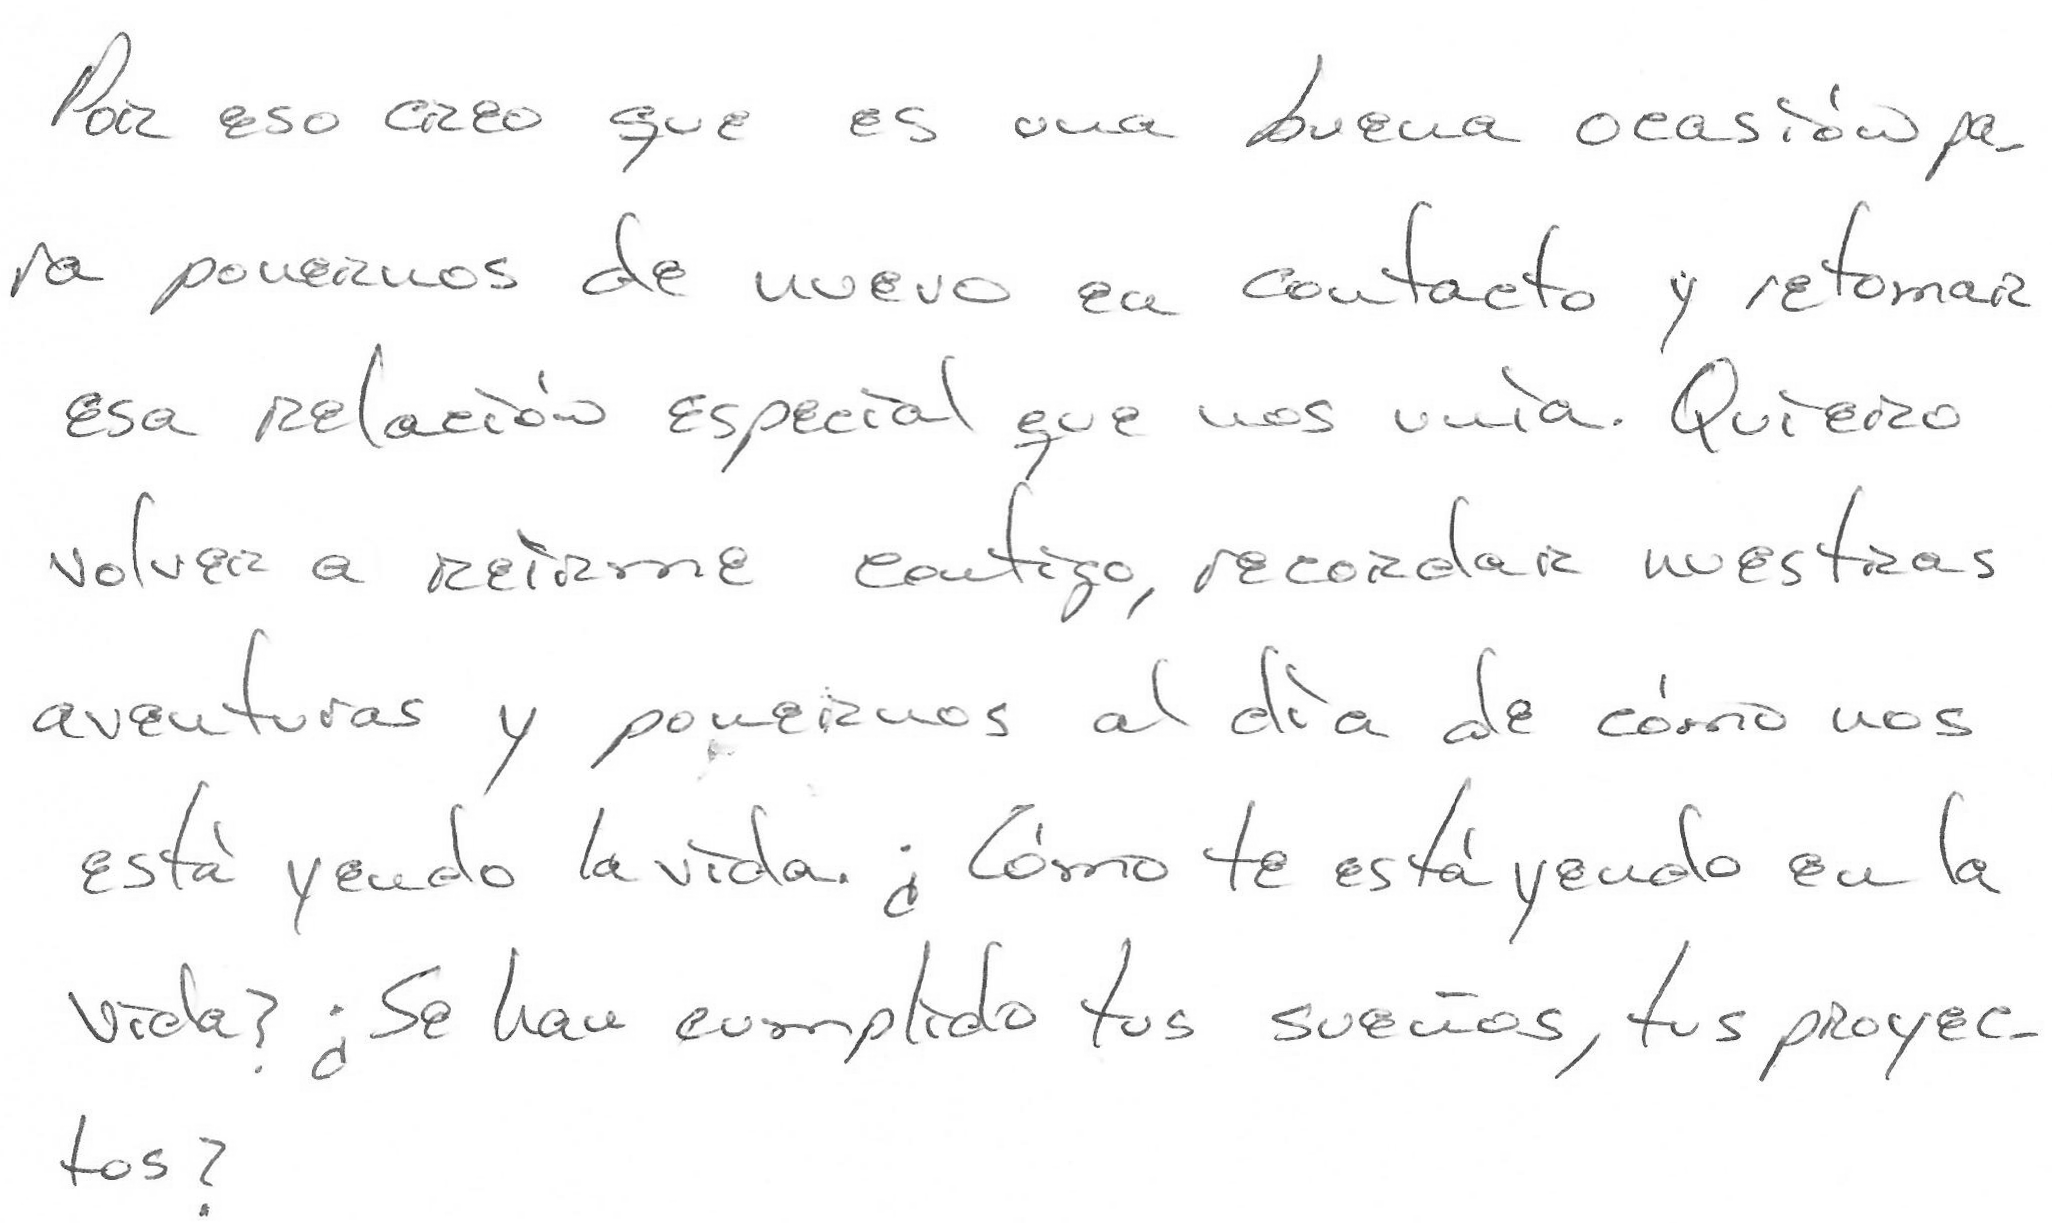 Por eso creo que es una buena ocasión pa-
ra ponernos de nuevo en contacto y retomar
esa relación especial que nos unía. Quiero
volver a reírme contigo, recordar nuestras
aventuras y ponernos al día de cómo nos
está yendo la vida. ¿Cómo te está yendo en la
vida? ¿Se han cumplido tus sueños, tus proyec-
tos?